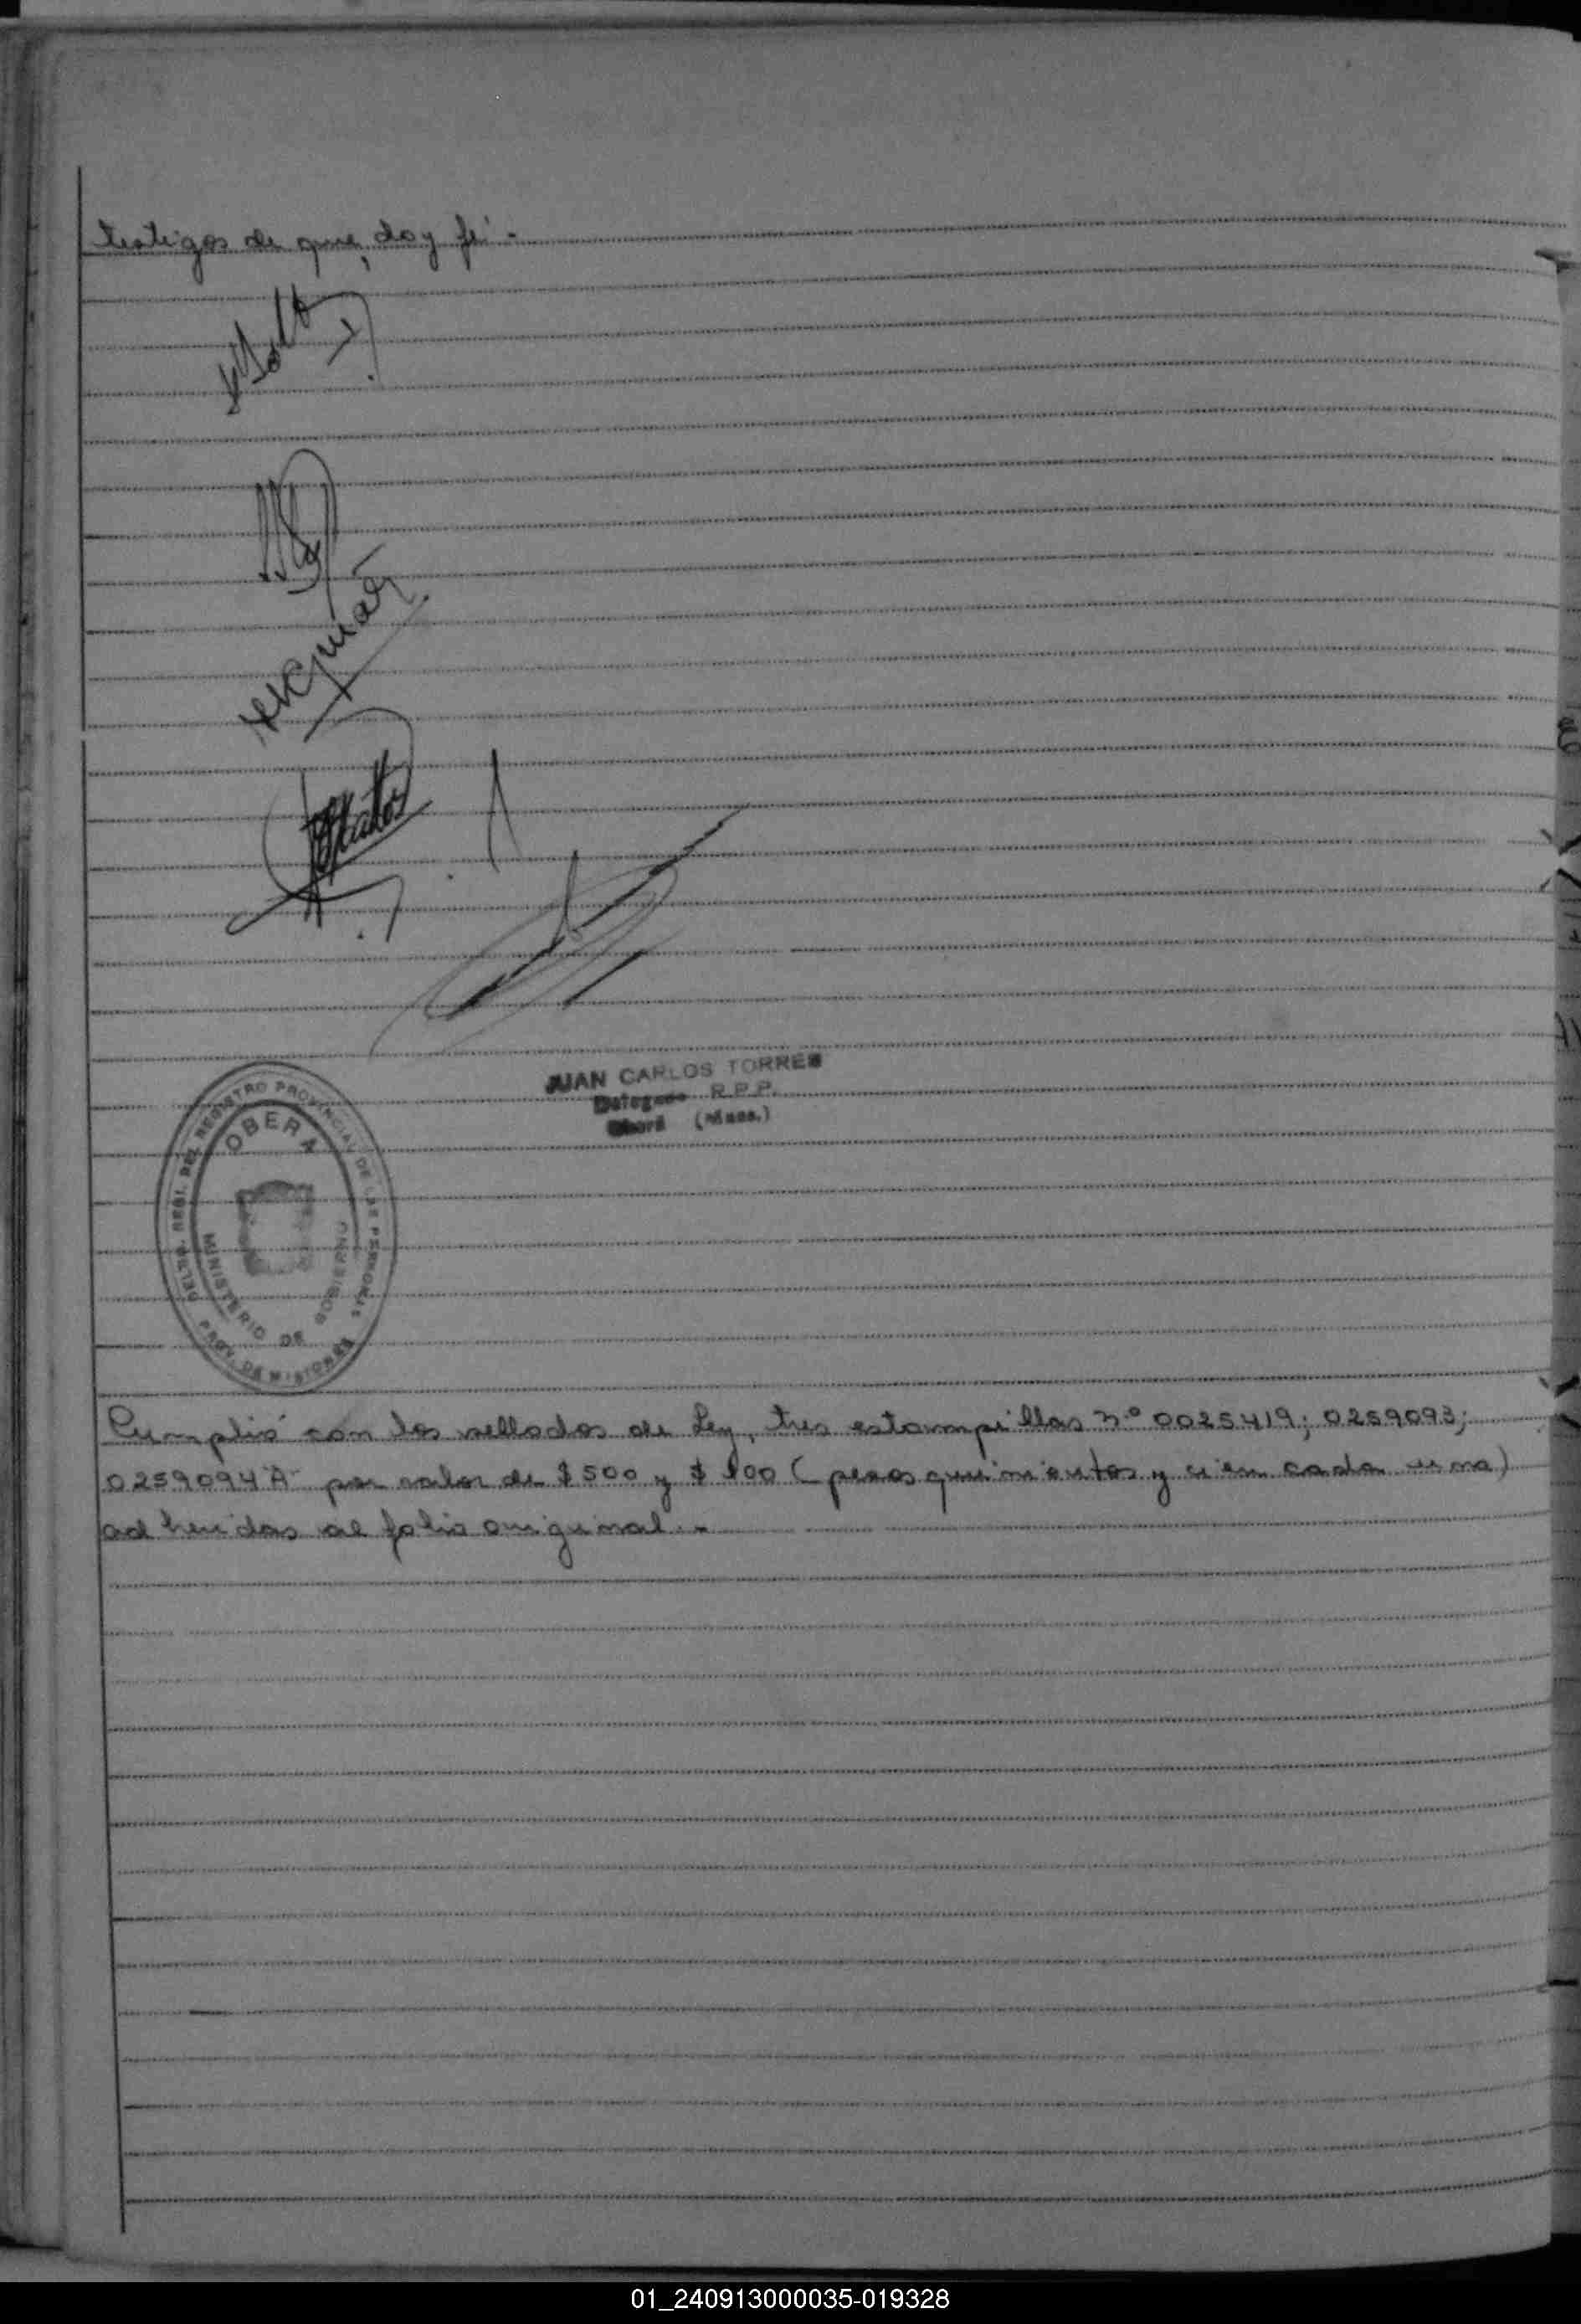 testigos de que, doy fé.-
JUAN CARLOS TORRES
Delegado R.P.P.
Oberá (Mnes.)
DELEG. REGI. DEL REGISTRO PROVINCIAL DE LAS PERSONAS
OBERA
MINISTERIO DE GOBIERNO
PROV. DE MISIONES
Cumplió con los sellados de Ley, tres estampillas nº 0025419; 0259093;
0259094"A" por valor de $500 y $100 (pesos quinientos y cien cada una)
adheridas al folio original.-
01_240913000035-019328